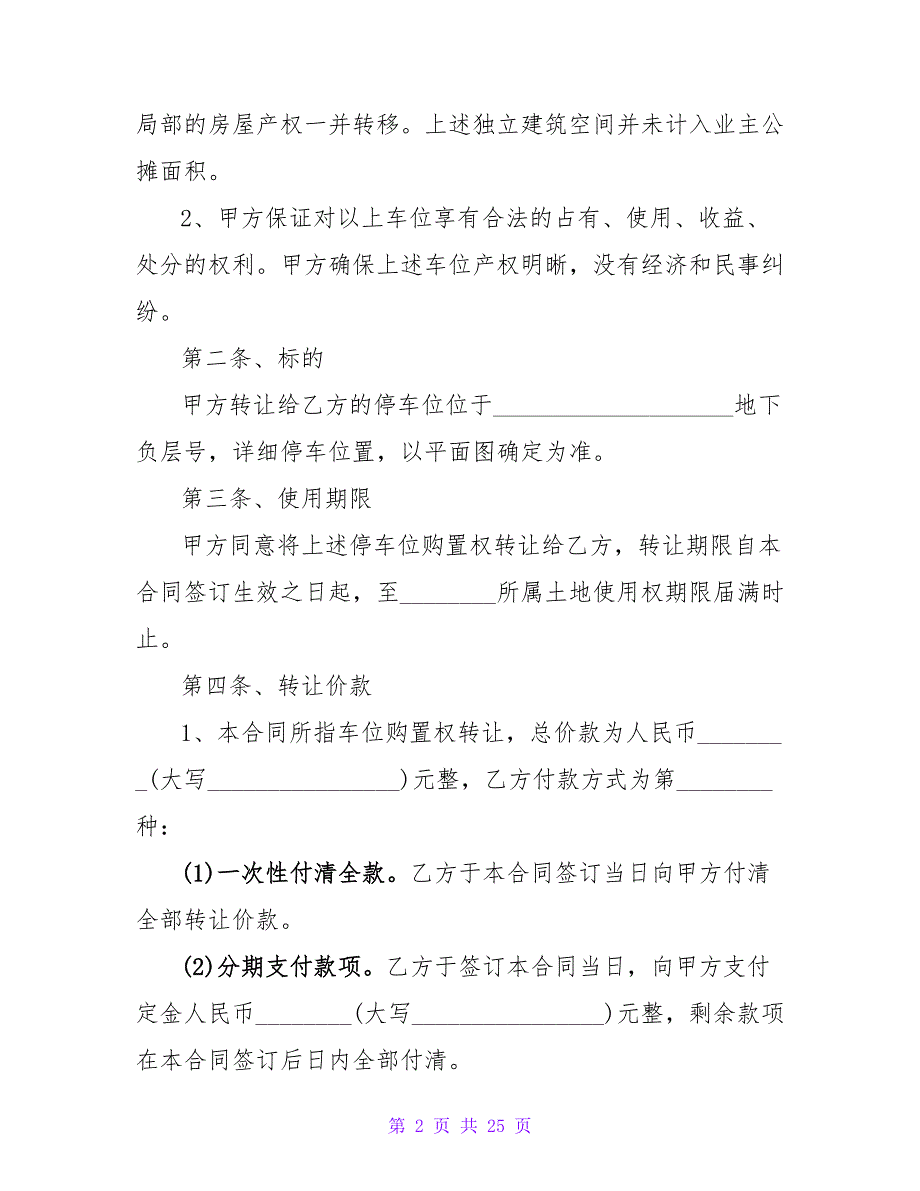 局部的房屋产权一并转移。上述独立建筑空间并未计入业主公
摊面积。
2、甲方保证对以上车位享有合法的占有、使用、收益、
处分的权利。甲方确保上述车位产权明晰，没有经济和民事纠
纷。
第二条、标的
甲方转让给乙方的停车位位于____________________地下
负层号，详细停车位置，以平面图确定为准。
第三条、使用期限
甲方同意将上述停车位购置权转让给乙方，转让期限自本
合同签订生效之日起，至________所属土地使用权期限届满时
止。
第四条、转让价款
1、本合同所指车位购置权转让，总价款为人民币_______
_(大写________________)元整，乙方付款方式为第________
种：
(1)一次性付清全款。乙方于本合同签订当日向甲方付清
全部转让价款。
(2)分期支付款项。乙方于签订本合同当日，向甲方支付
定金人民币________(大写________________)元整，剩余款项
在本合同签订后日内全部付清。
第 2 页 共 25 页